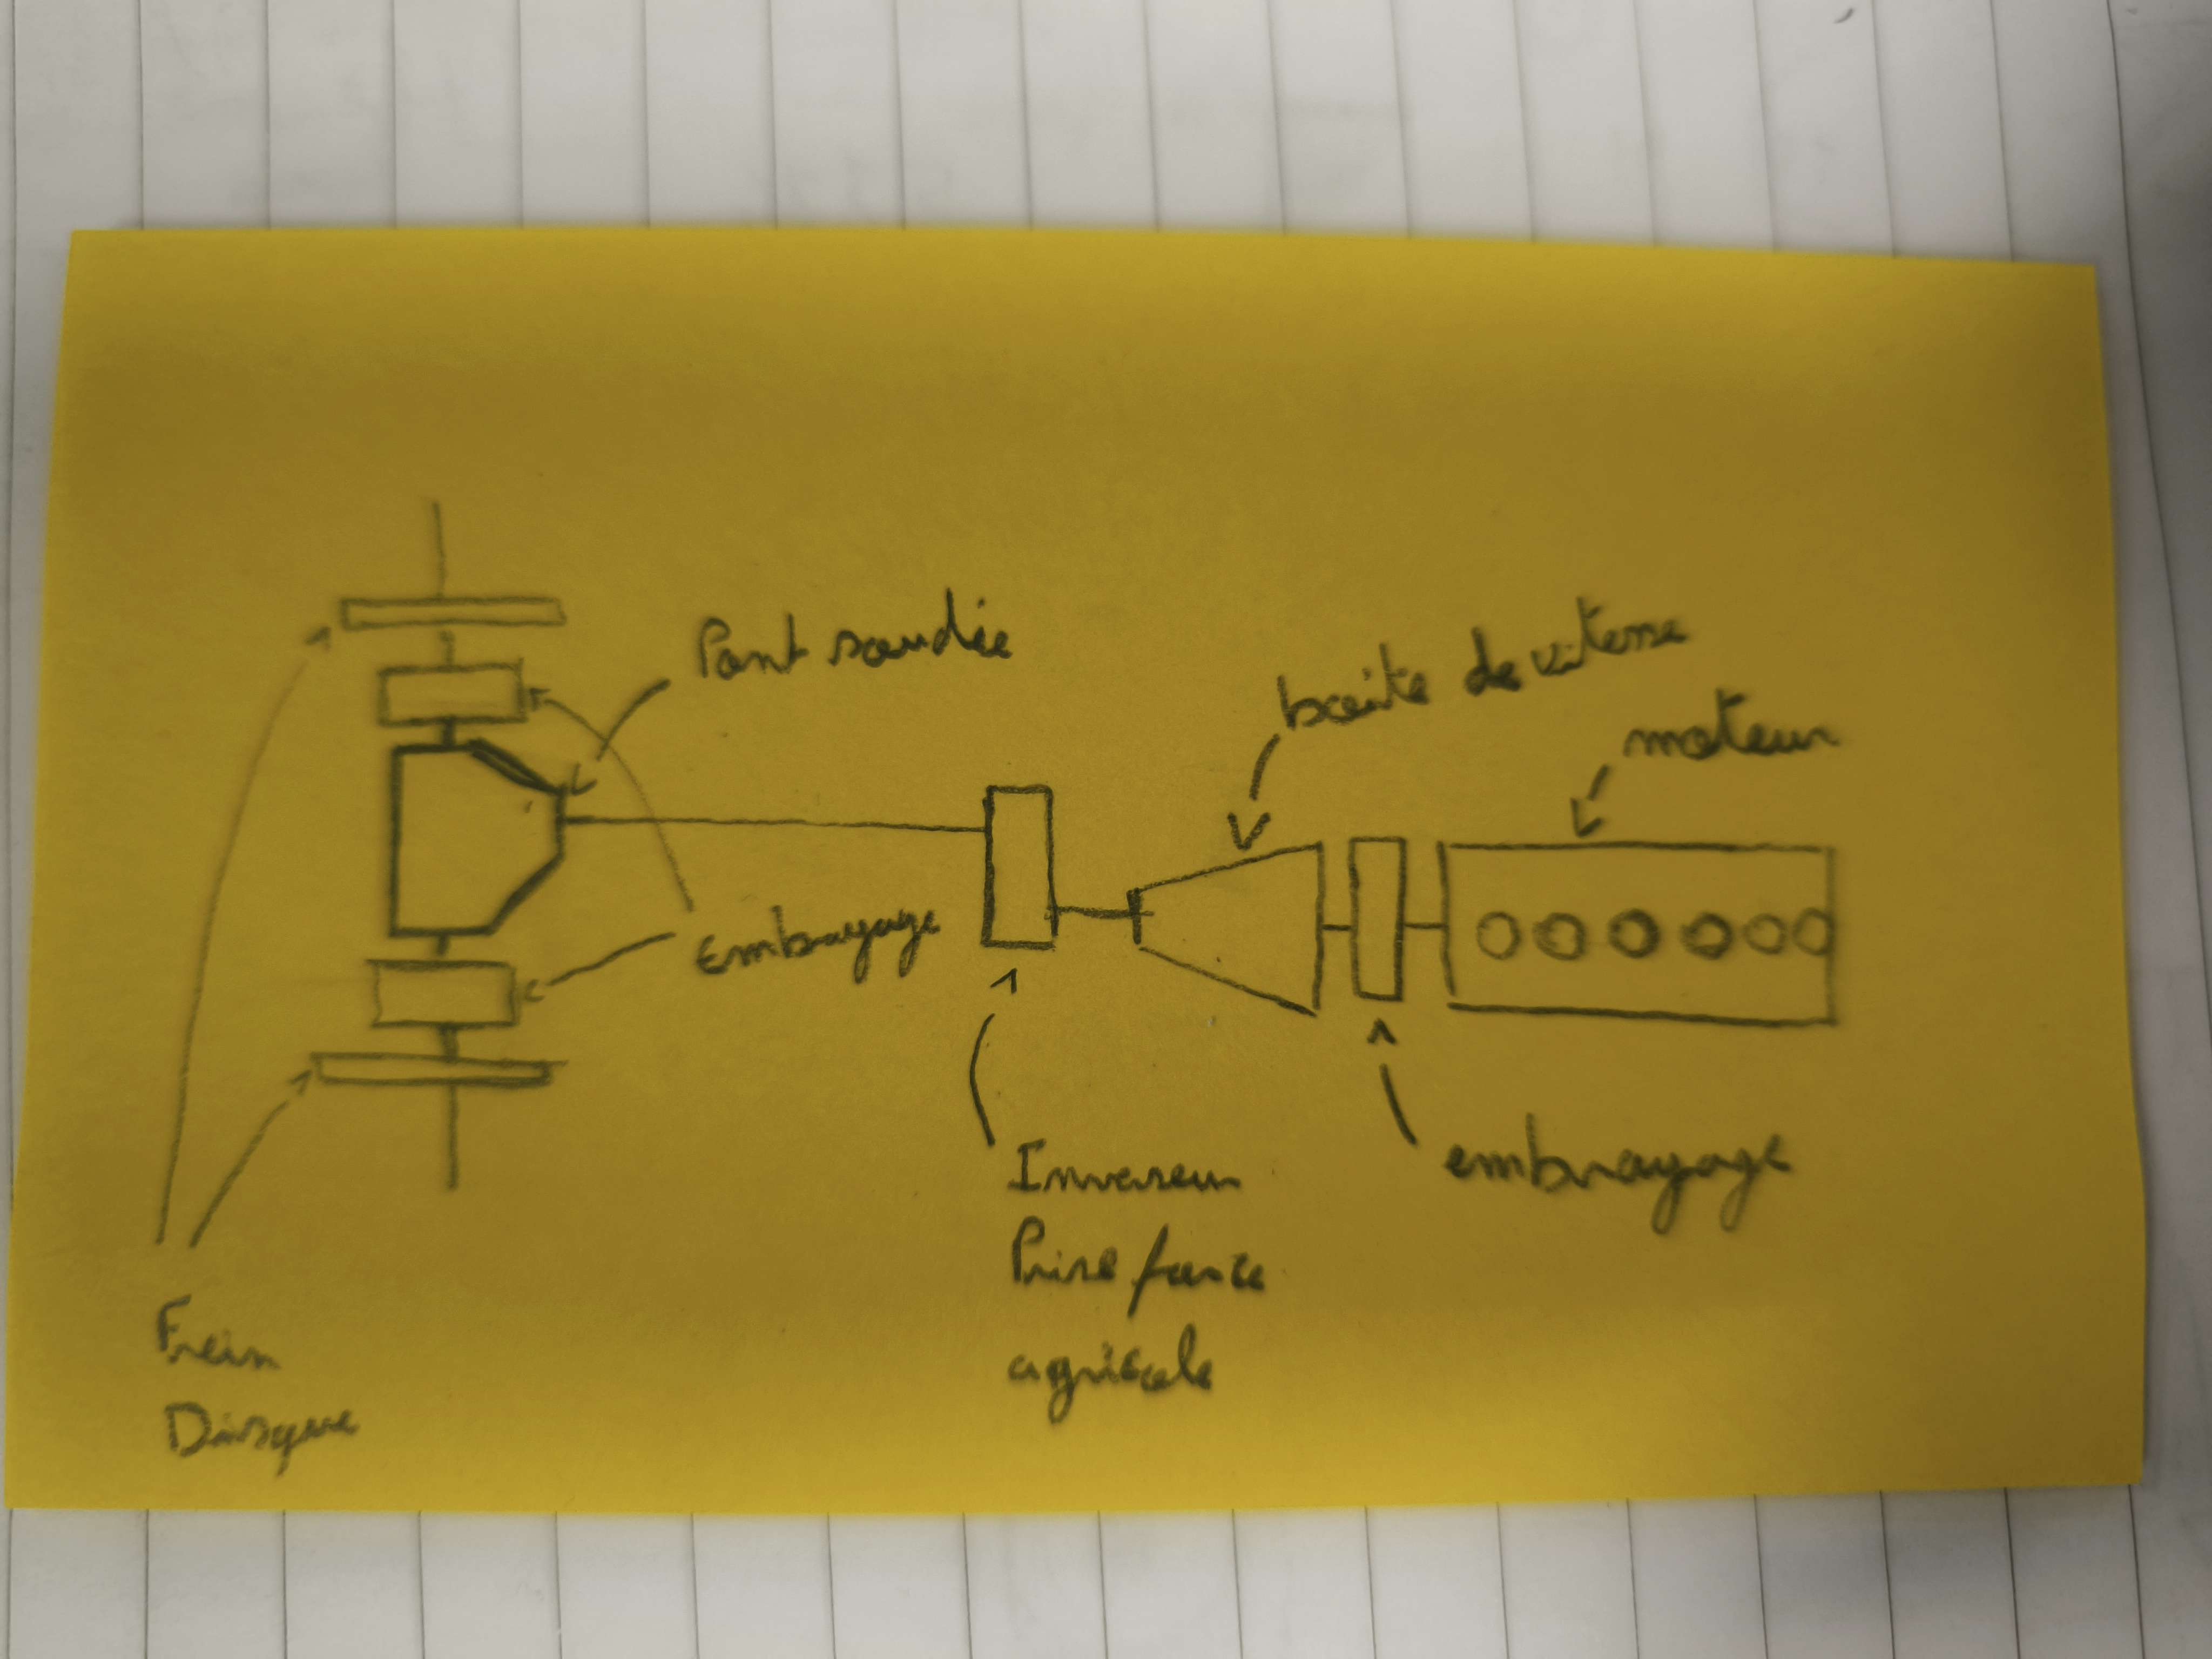 Pont soudée
boite de vitesse
moteur
Embrayage
embrayage
Inverseur
Prise force
agricole
Frein
Disque